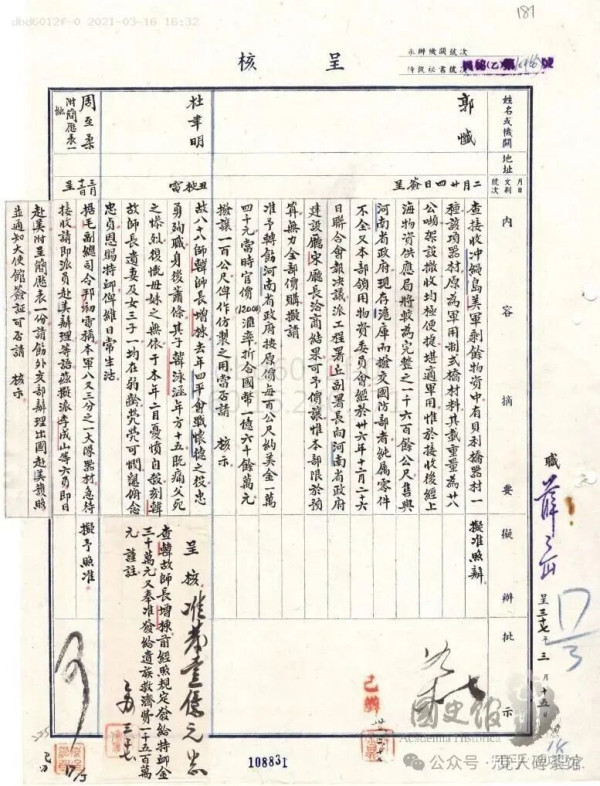 dbd6012f-0 2021-03-16 16:32
181
呈核
承辦機關號次
侍從秘書號次
姓名或機關
地址
月日
文別
號次
內容摘要
擬辦
批示
郭懺
二月廿四日簽呈
查接收冲繩島美軍剩餘物資中有貝利橋器材一
種該項器材原為軍用制式橋材料其載重量為廿八
公噸架設撤收均極便捷堪適軍用惟於接收後經上
海物資供應局將較為完整之一千六百餘公尺售與
河南省政府現存滬庫而撥交國防部者純屬零件
不全又本部領用物資委員會經於卅六年十二月二十六
日聯合會報決議派工程署丘副署長向河南省政府
建設廳宋廳長洽商結果可予價讓惟本部限於預
算無力全部價購擬請
准予轉飭河南省政府按原價每百公尺約美金一萬
四千元當時官價(12000)滙率折合國幣一億六千餘萬元
撥讓一百公尺俾作仿製之用當否請 核示
擬准照辦
杜聿明
丑
故八十八師韓師長增棟去年四平會戰懷德之役忠
勇殉職身後蕭條其子韓泳涵年方十五既痛父死
之慘烈復慨母妹之無依于本年二月憂憤自殺刻韓
故師長遺妻及女三子一均在弱齡煢煢可憫懇俯念
忠貞恩賜特卹俾維日常生活
呈核
准發壹億元
查韓故師長增棟前經照規定發給特卹金
三千萬元又奉准發給遺族救濟費一千五百萬
元 謹註
周至柔
附簡歷表一
批
三月
呈
據毛副總司令邦初電稱本軍八又三分之一大隊器材急待
接收請即派員赴美辦理等語茲擬派李成山等六員即日
赴美附呈簡歷表一份請飭外交部辦理出國赴美護照
並通知大使館簽証可否請 核示
擬予照准
職
薛岳
呈三十七年三月十五
17/3
已辦
108831
國史館
Academia Historica
公众号·究大砖茶馆